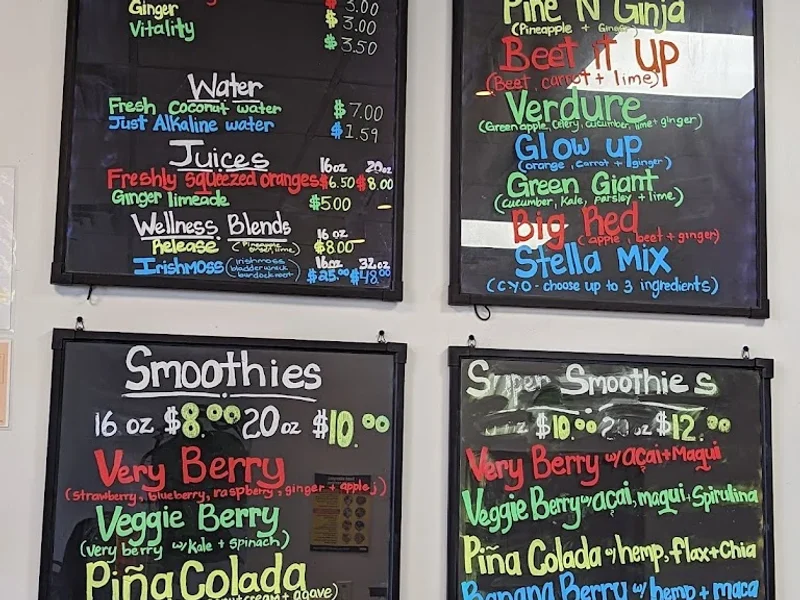 Ginger $3.00
Vitality $3.00
$3.50
Water
Fresh coconut water $7.00
Just Alkaline water $1.59
Juices 16oz 20oz
Freshly squeezed oranges $6.50 $8.00
Ginger limeade $5.00
Wellness Blends 16 oz
Release $8.00
16oz 32oz
Irishmoss (irishmoss bladderwrack burdockroot) $25.00 $48.00
Pine N Ginja
(Pineapple + Ginger)
Beet it up
(Beet, carrot + lime)
Verdure
(Green apple, celery, cucumber, lime + ginger)
Glow up
(orange, carrot + ginger)
Green Giant
(cucumber, Kale, parsley + lime)
Big Red
(apple, beet + ginger)
Stella Mix
(C.Y.O - choose up to 3 ingredients)
Smoothies
16 oz $8.00 20oz $10.00
Very Berry
(strawberry, blueberry, raspberry, ginger + apple j)
Veggie Berry
(very berry w/ kale + spinach)
Piña Colada
cream + agave)
Super Smoothies
oz $10.00 20 oz $12.00
Very Berry w/ açai + Maqui
Veggie Berry w/ açai, maqui + Spirulina
Piña Colada w/ hemp, flax + Chia
Banana Berry w/ hemp + maca